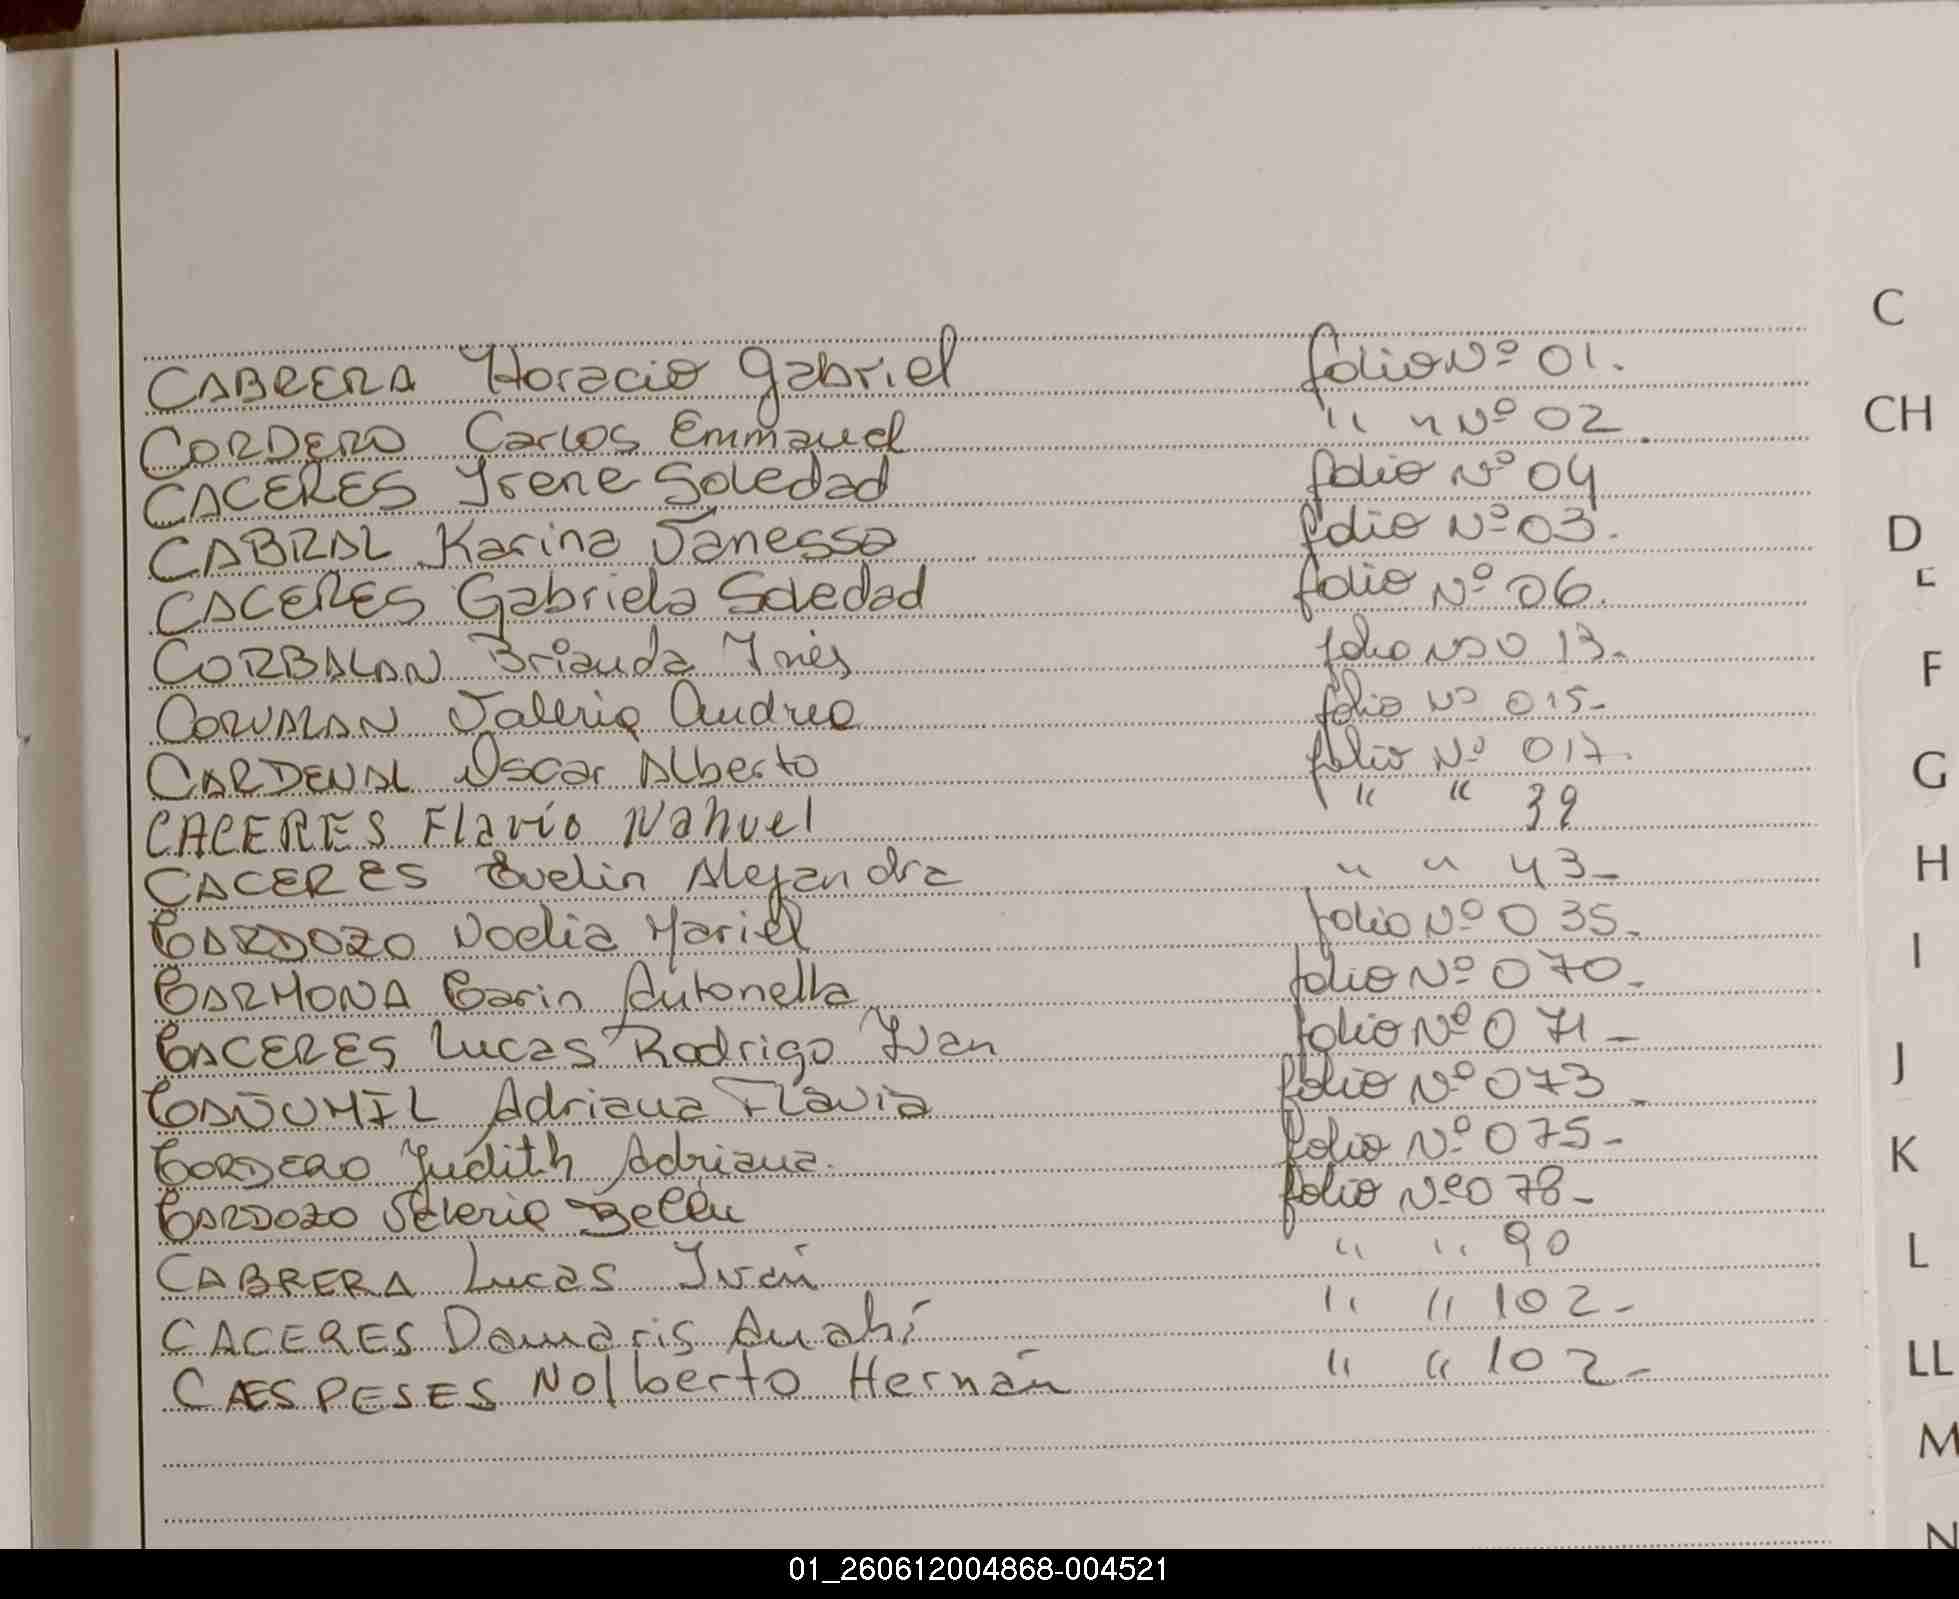 C
CABRERA Horacio Gabriel folio Nº 01.
CH
CORDERO Carlos Emmanuel " " Nº 02
CACERES Irene Soledad folio Nº 04
CABRAL Karina Vanessa folio Nº 03.
D
CACERES Gabriela Soledad folio Nº 06.
E
CORBALAN Brianda Inés folio Nº 013.
F
CORVALAN Valeria Andrea folio Nº 015-
CARDENAL Oscar Alberto folio Nº 017.
G
CACERES Flavio Nahuel " " 39
CACERES Evelin Alejandra " " 43-
H
CARDOZO Noelia Mariel folio Nº 035-
I
CARMONA Carin Antonella folio Nº 070-
CACERES Lucas Rodrigo Ivan folio Nº 071-
J
CAÑUMIL Adriana Flavia folio Nº 073-
CORDERO Judith Adriana. folio Nº 075-
K
CARDOZO Valeria Belén folio Nº 078-
CABRERA Lucas Iván " " 90
L
CACERES Damaris Anahí " " 102-
CAESPESES Nolberto Hernán " " 102-
LL
M
N
01_260612004868-004521